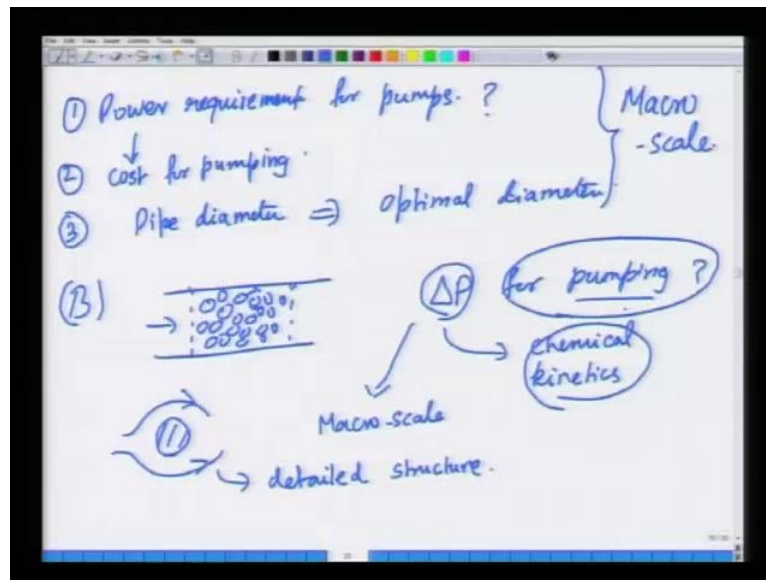 ① Power requirement for pumps. ?
② cost for pumping.
③ Pipe diameter ⇒ Optimal diameter
Macro
-scale.
(B)
ΔP for pumping ?
chemical
kinetics
Macro-scale
detailed structure.